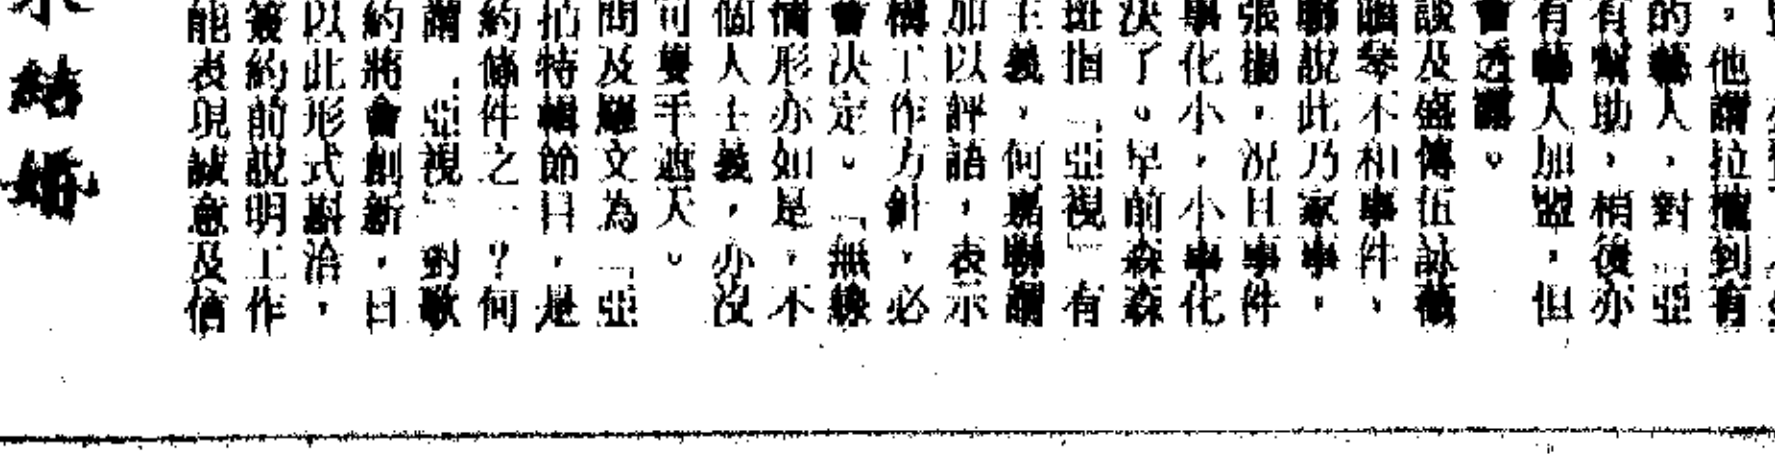 。他謂拉攏到有
的藝人，對「亞
有幫助，稍後亦
有藝人加盟，但
會透露。
談及盛傳伍詠薇
琴不和事件，
聯說此乃家事，
張揚，況且事件
事化小，小事化
決了。早前森森
斑指「亞視」有
主義，何麗聯謂
加以評語，表示
構工作方針，必
會決定。「無線
情形亦如是，不
個人主義，亦沒
可隻手遮天。
問及羅文為「亞
拍特輯節目，是
約條件之一？何
謂「亞視」對歌
約將會創新，日
以此形式斟洽，
簽約前說明工作
能表現誠意及信
結婚